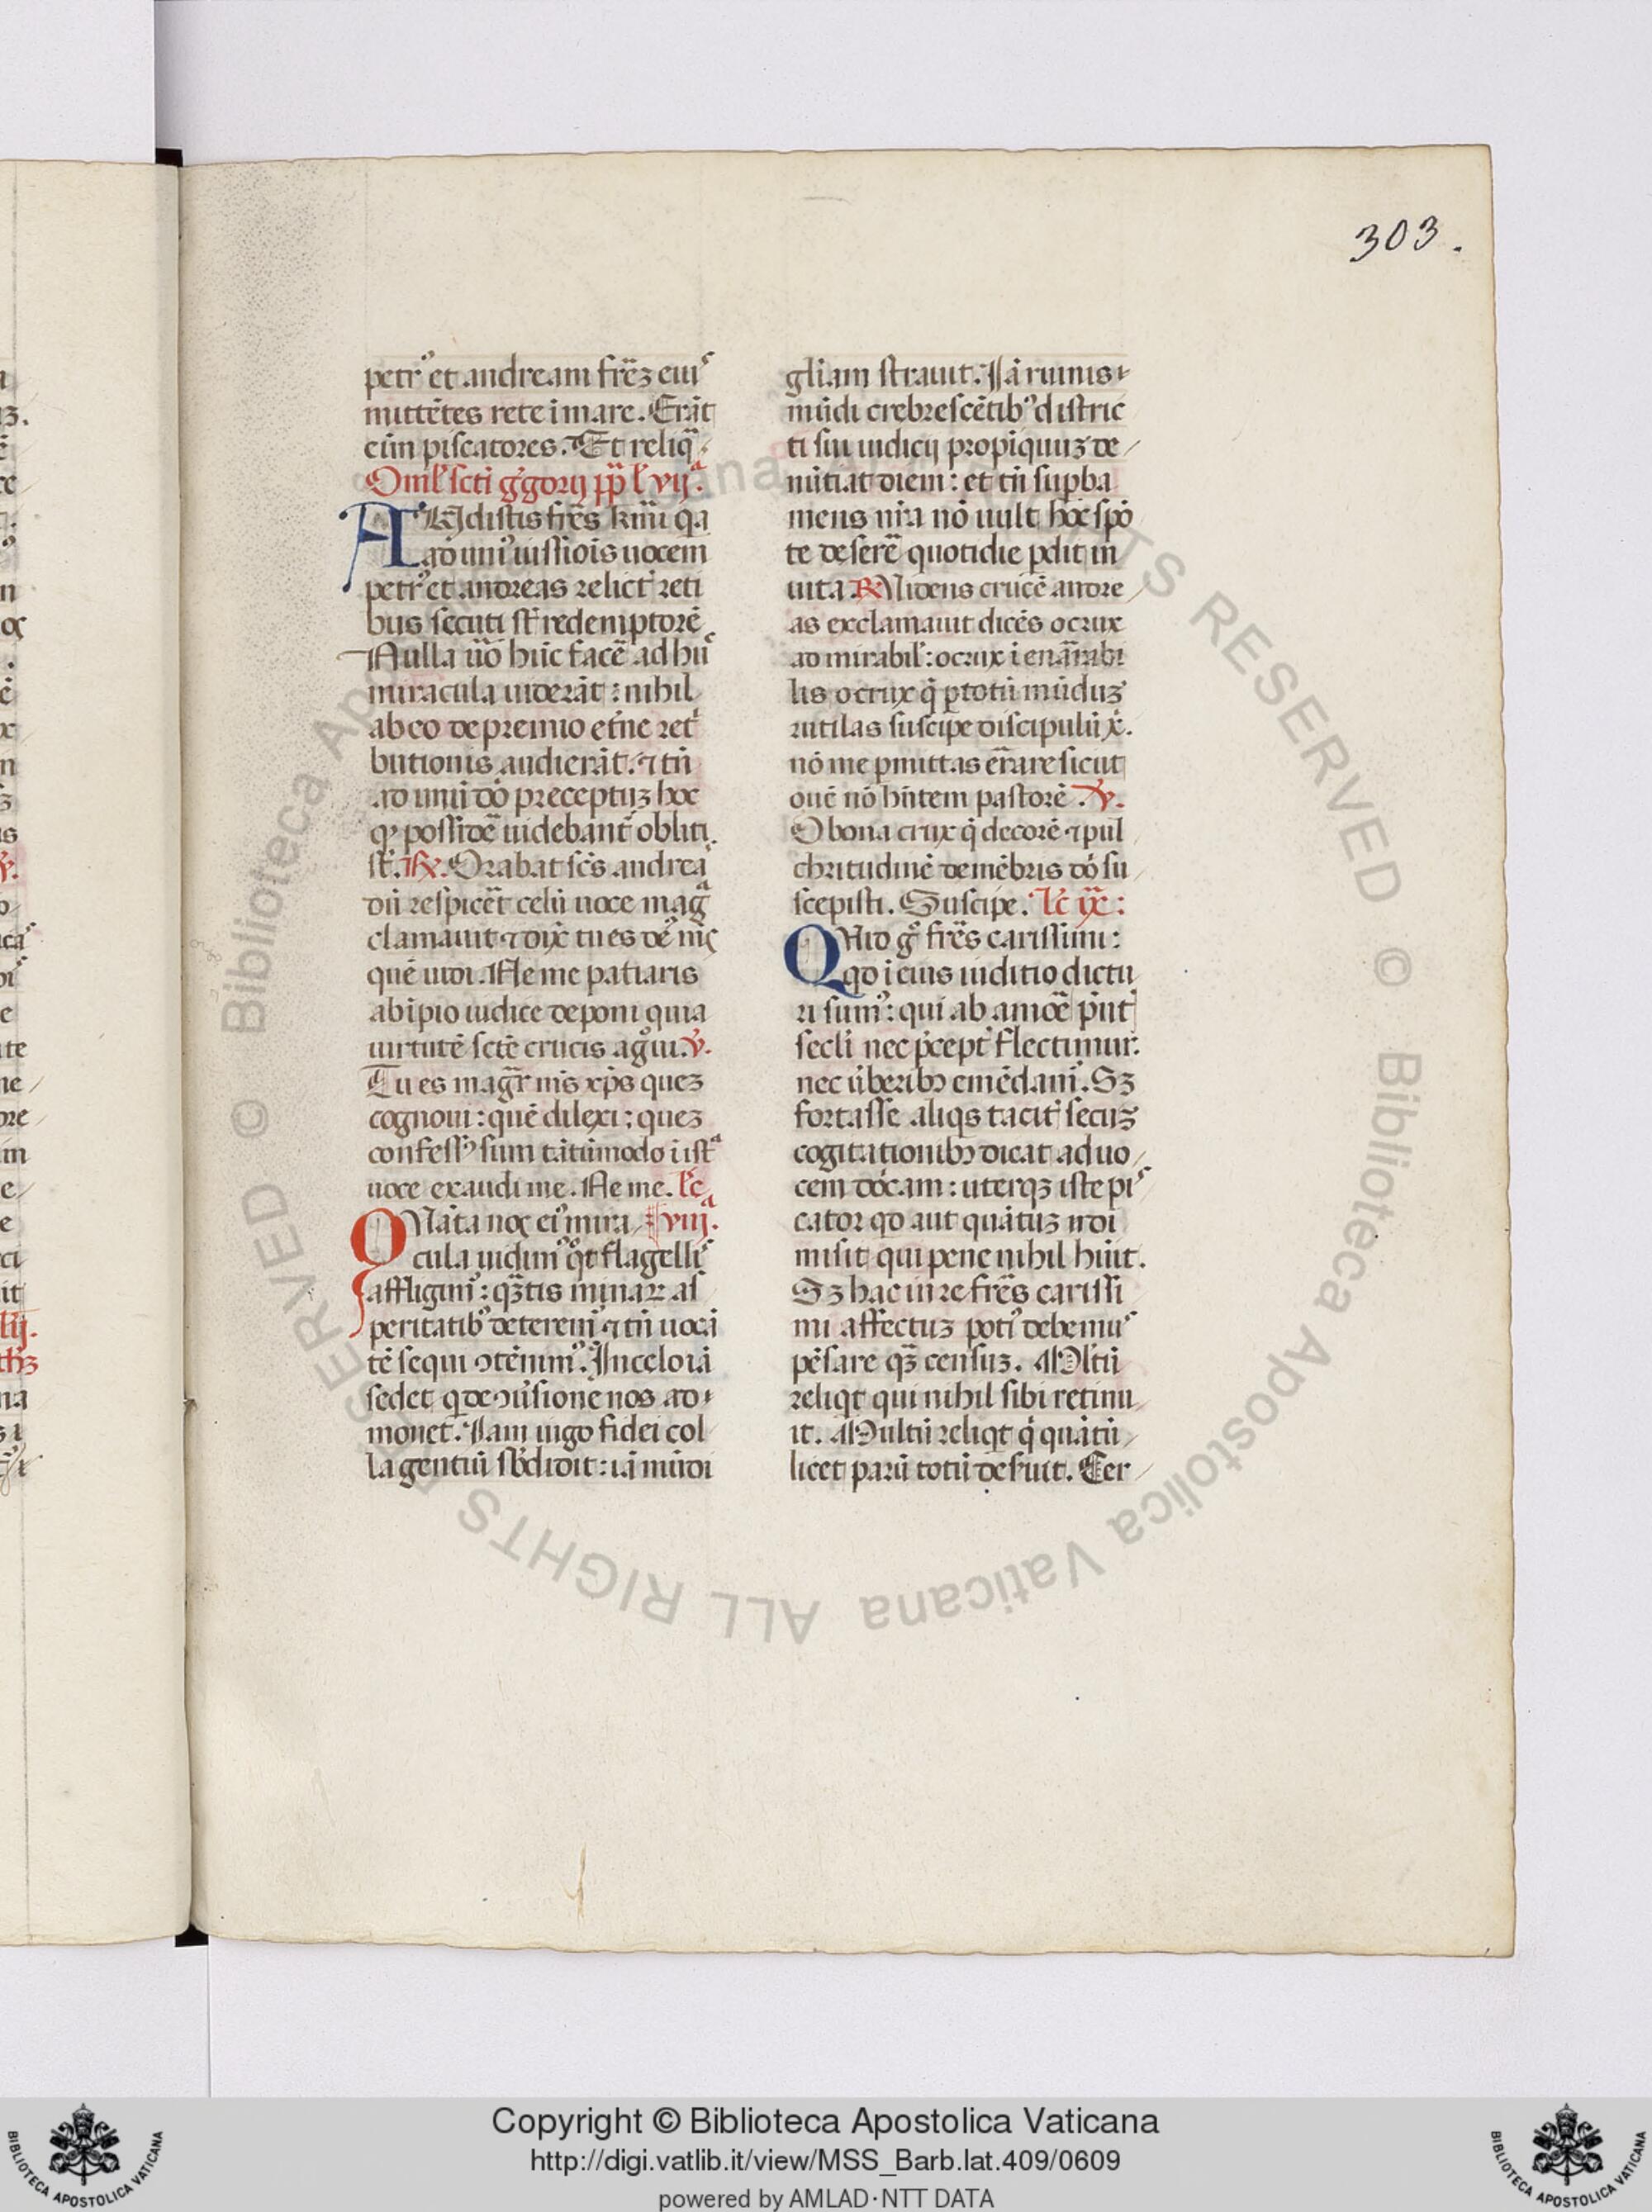 303.
petrꝰ et andream fr̃eꝫ eiuˢ
mittẽtes rete i mare. Erãt
eĩm piscatores. Et reliq̃.
Omĺ sc̃ti g̃gorij pp̃ ĺ vijᵃ.
AUdistis fr̃es kr̃mi q̃a
ad uniꝰ iussiõis uocem
petrꝰ et andreas relict᷒ reti
bus secuti st̃ redemptorẽ
Nulla ũo hũc facẽ ad huᶜ
miracula uiderãt: nihil
ab eo de premio et̃ne ret᷒
butionis audierãt. ⁊ tñ
ad unũ dñi preceptuꝫ hoc
qꝫ possidẽ uidebant᷒ obliti
st̃. ℞. Orabat sc̃s andreaˢ
dũ respicẽt celũ uoce magᵃ
clamauit ⁊ dix̃ tu es deꝰ mꝰ
quẽ uidi. Ne me patiaris
ab ipio iudice deponi quia
uirtutẽ sc̃te crucis agᵒui. ℣.
Tu es magr̃ mꝰ xp̃s queꝫ
cognoui: quẽ dilexi: queꝫ
confessꝰ sum tãtũmodo i istᵃ
uoce exaudi me. Ne me. lc̃
QUãta noꝫ eiꝰ mira viijᵃ.
cula uidimꝰ qᵒt flagelliˢ
affligimꝰ: qꝫ̃tis minaꝝ aˢ
peritatibꝰ deteremꝰ ⁊ tñ uocã
tẽ sequi ꝯtẽnimꝰ. In celo iã
sedet q̃ de ꝯũsione nos ad
monet. Iam iugo fidei col
la gentiũ sb̃didit: iã mũdi
gliam strauit. Iã ruinis
mũdi crebrescẽtibꝰ distric
ti sui iudicij propĩquiuꝫ de
nũtiat diem: et tñ supba
mens nr̃a nõ uult hoc spõ
te deserẽ quotidie pdit in
uita ℞ Videns crucẽ andre
as exclamauit dicẽs o crux
ad mirabiĺ: o crux i enãrrabi
lis o crux q̃ p totũ mũduꝫ
rutilas suscipe discipulũ x̃.
nõ me pmittas errare sicut
ouẽ nõ hñtem pastorẽ. ℣.
O bona crux q̃ decorẽ ⁊ pul
chritudinẽ de mẽbris dñi su
scepisti. Suscipe. Lc̃ ix:
QUid gᵒ fr̃es carissimi:
qd i eius iuditio dictu
ri sumꝰ: qui ab amoẽ pñt
secli nec p̃cept᷒ flectimur:
nec ũberibꝫ emẽdamꝰ. Sꝫ
fortasse aliqs tacit᷒ secuꝫ
cogitationibꝫ dicat ad uo
cem dñicam: uterqꝫ iste piˢ
cator qd aut quãtuꝫ
misit qui pene nihil hũit.
Sꝫ hac in re fr̃es carissi
mi affectuꝫ potiꝰ debemuˢ
pẽsare qꝫ̃ censuꝫ. Mĺtũ
reliqt qui nihil sibi retinu
it. Multũ reliqt q̃ quãtũ
licet parũ totũ deseruit. Cer
Copyright © Biblioteca Apostolica Vaticana
http://digi.vatlib.it/view/MSS_Barb.lat.409/0609
powered by AMLAD·NTT DATA